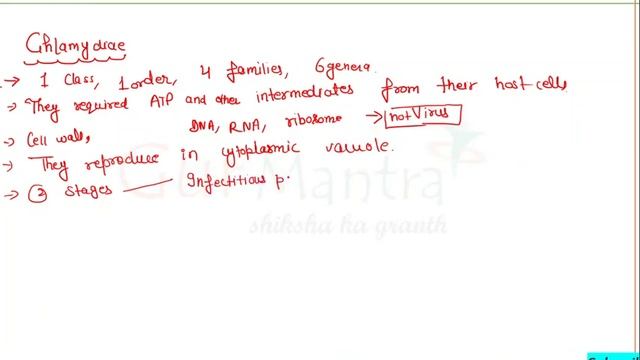 Chlamydiae
→ 1 class, 1 order, 4 families, 6 genera.
→ They required ATP and other intermediates from their host cells
→ Cell wall, DNA, RNA, ribosome → not Virus
→ They reproduce in cytoplasmic vacuole.
→ 2 stages — Infectitious p.
Mantra
shiksha ka granth